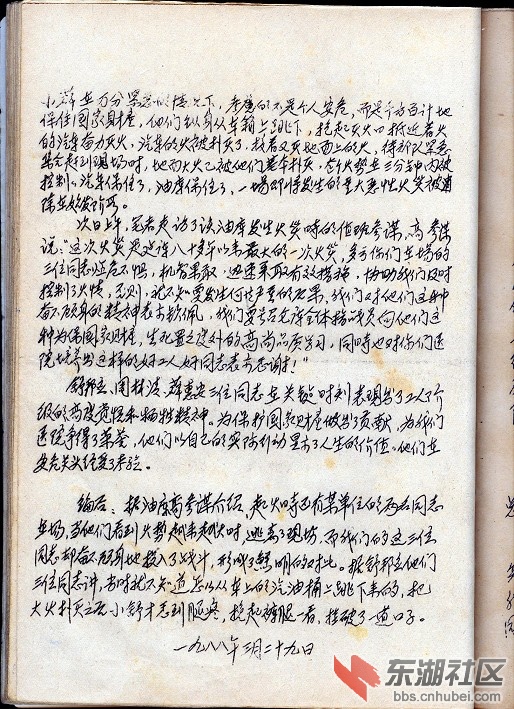 小薛在万分紧急的情况下，考虑的不是个人安危，而是千方百计地
保住国家财产，他们纵身从车箱上跳下，抢起灭火口抵近着火
的汽车奋力灭火，汽车的火被扑灭了，接着又灭地面上的火，待部队军
赶到现场时，地面火已被他们基本扑灭，在火势在三分钟内被
控制。汽车保住了，油库保住了，一场即将发生的重大恶性火灾被消
除在始发阶段。
次日上午，笔者走访了该油库发生火灾时的值班参谋，高参谋
说："这次火灾是建库八十多年以来最大的一次火灾，多亏你们在场的
三位同志临危不惧，机智果敢，迅速采取有效措施，协助我们及时
控制了火情，否则，就不知要发生何等严重的后果，我们对他们这种
奋不顾身的精神表示钦佩，我们要号召全库全体指战员向他们这
种为保国家财产，生死置之度外的高尚品质学习，同时也对你们医
院培养出这样的好工人好同志表示感谢！"
舒邦立、周林波、薛惠安三位同志在关键时刻表现出了工人阶
级的高度觉悟和牺牲精神。为保护国家财产做出了贡献，为我们
医院争得了荣誉，他们以自己的实际行动显示了人生的价值。他们在
安危关头经受了考验。
编后：据油库高参谋介绍，起火时还有某单位的两名同志
在场，当他们看到火势越来越大时，逃离了现场，而我们的这三位
同志却奋不顾身地投入了战斗，形成了鲜明的对比。据舒邦立他们
三位同志讲，当时就不知道怎么从车上的汽油桶上跳下来的，把
大火扑灭之后小舒才感到腿疼，挽起裤腿一看，挂破了一道口子。
一九八八年三月二十九日
东湖社区
bbs.cnhubei.com